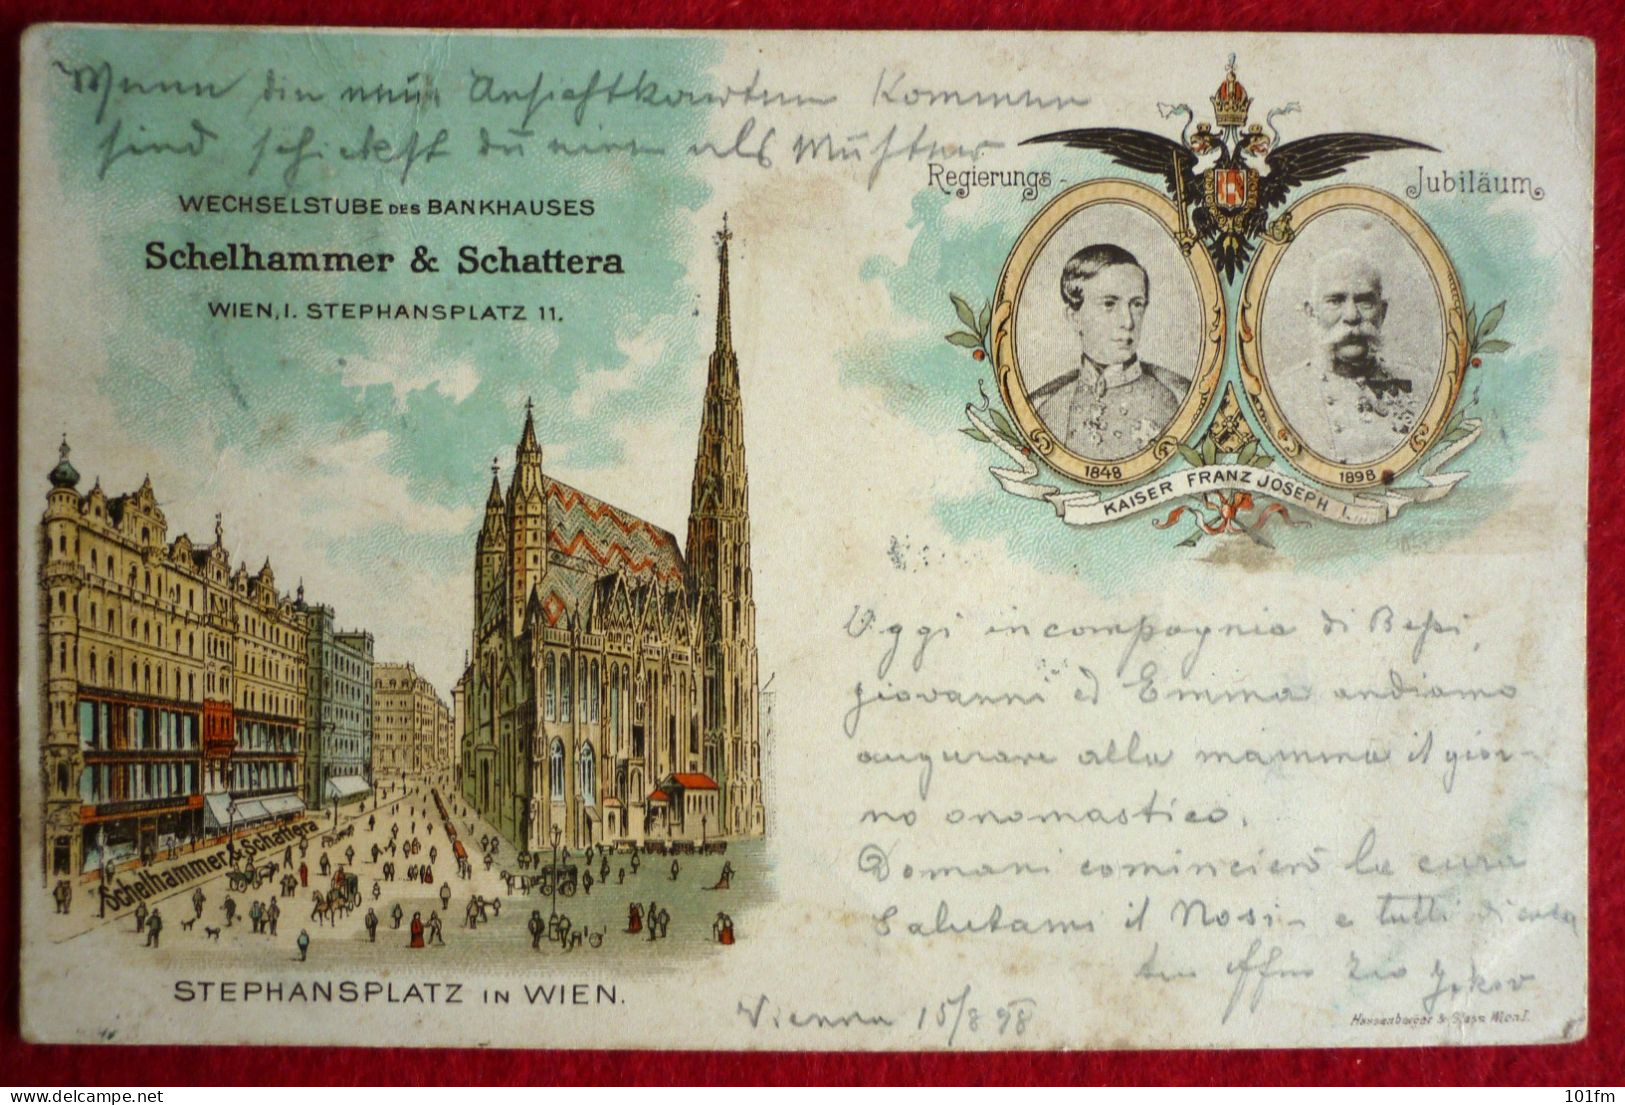 Wenn die neuen Ansichtkarten kommen
sind schickst du eine als Muster
WECHSELSTUBE DES BANKHAUSES
Schelhammer & Schattera
WIEN, I. STEPHANSPLATZ 11.
Regierungs-Jubiläum
1848
1898
KAISER FRANZ JOSEPH I.
Schelhammer & Schattera
STEPHANSPLATZ IN WIEN.
Oggi in compagnia di Bepi,
giovanni ed Emma andiamo
augurare alla mamma il gior-
no onomastico.
Domani comincierò la cura
Salutami il Nosi- e tutti di casa
tuo affmo zio
Vienna 15/8 98
101fm